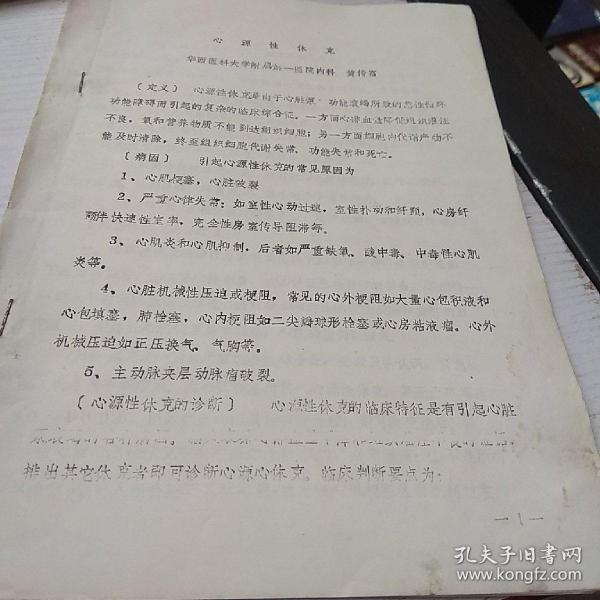 心源性休克
华西医科大学附属第一医院内科 黄传富
(定义) 心源性休克是由于心脏泵 功能衰竭所致的急性循环
功能障碍而引起的复杂的临床综合征。一方面心排血量降低组织灌注
不良,氧和营养物质不能到达组织细胞;另一方面细胞内代谢产物不
能及时清除,终至组织细胞代谢失常、功能失常和死亡。
(病因) 引起心源性休克的常见原因为
1、心肌梗塞,心脏破裂
2、严重心律失常:如室性心动过速,室性扑动和纤颤,心房纤
颤伴快速性室率,完全性房室传导阻滞等。
3、心肌炎和心肌抑制,后者如严重缺氧、酸中毒、中毒性心肌
炎等。
4、心脏机械性压迫或梗阻,常见的心外梗阻如大量心包积液和
心包填塞,肺栓塞,心内梗阻如二尖瓣球形栓塞或心房粘液瘤。心外
机械压迫如正压换气、气胸等。
5、主动脉夹层动脉瘤破裂。
(心源性休克的诊断) 心源性休克的临床特征是有引起心脏
排出其它休克者即可诊断心源心休克。临床判断要点为:
—1—
孔夫子旧书网
www.kongfz.com